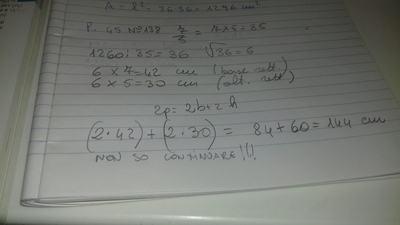 A = l² = 36·36 = 1296 cm²
P. 45 N° 138 7/5 = 7×5=35
1260:35=36 √36=6
6×7=42 cm (base rett.)
6×5=30 cm (alt. rett.)
2p=2b+2h
(2·42)+(2·30)= 84+60=144 cm
NON SO CONTINUARE!!!